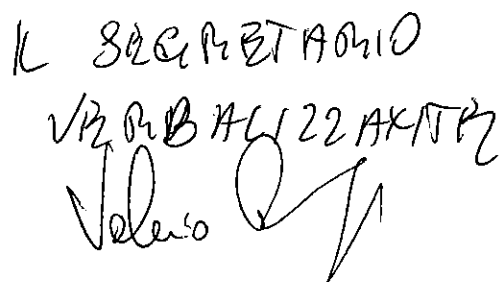 IL SEGRETARIO
VERBALIZZANTE
Valerio